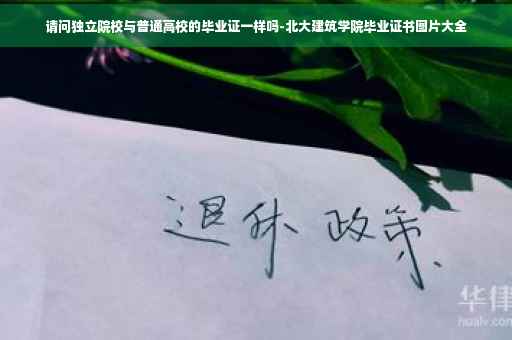 请问独立院校与普通高校的毕业证一样吗-北大建筑学院毕业证书图片大全
退休 政策
华律
hualv.com